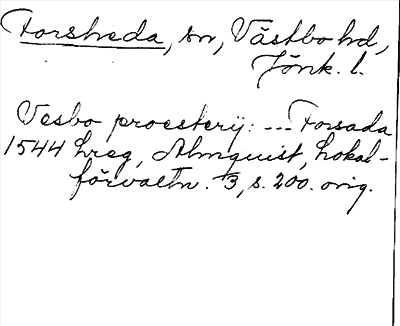 Forsheda, sn, Västbo hd,
Jönk. l.
Vesbo proesterij: --- Forsada
1544 hreg, Almquist, Lokal-
förvaltn. 3, s. 200. orig.